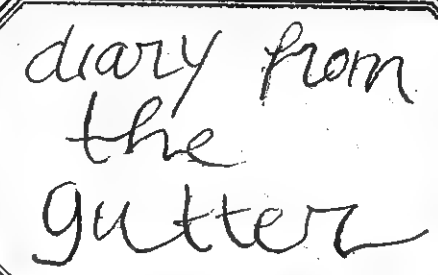 diary from
the
gutter